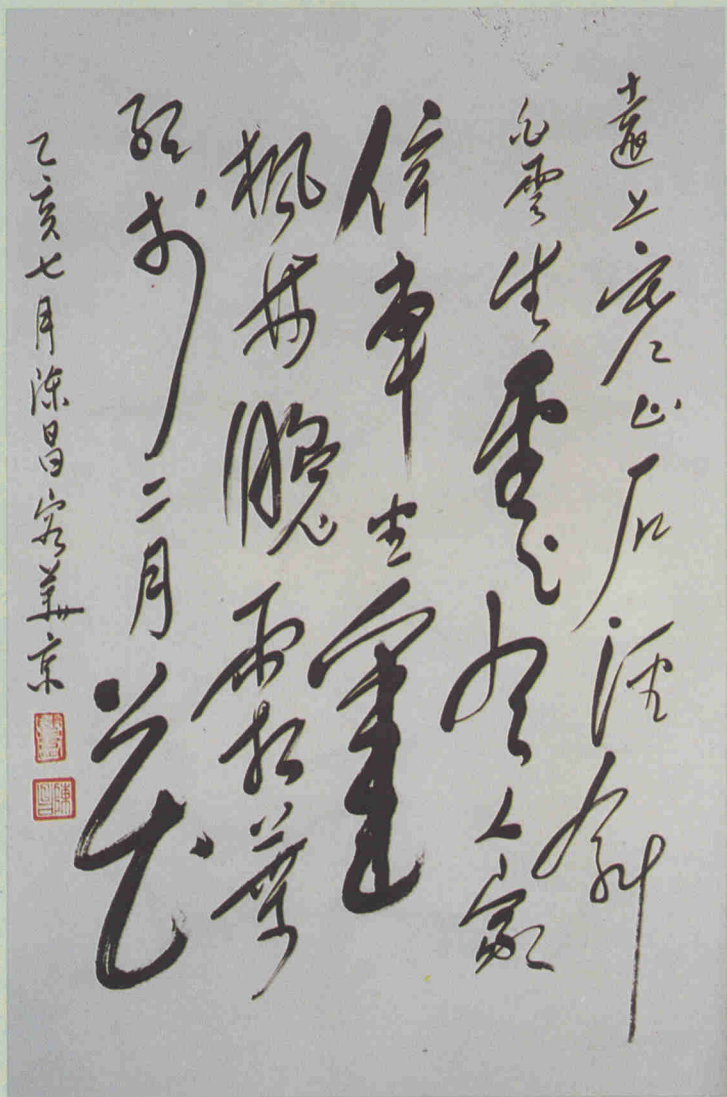 遠上寒山石徑斜
白雲生處有人家
停車坐愛
楓林晚霜葉
紅於二月花
乙亥七月陳昌客京